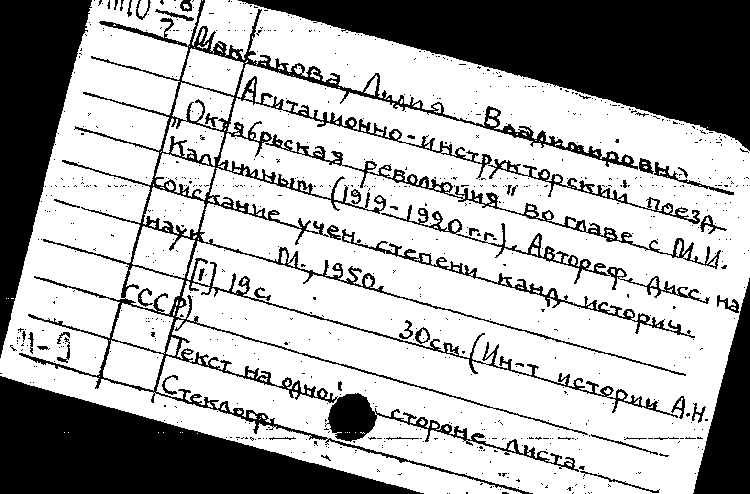 Максакова, Лидия Владимировна
Агитационно-инструкторский поезд
„Октябрьская революция" во главе с М.И.
Калининым (1919-1920 г.г.). Автореф. дисс. на
соискание учен. степени канд. историч.
наук. М., 1950.
[1], 19 с. 30 см. (Ин-т истории А.Н.
СССР).
Текст на одной стороне листа.
Стеклогр.